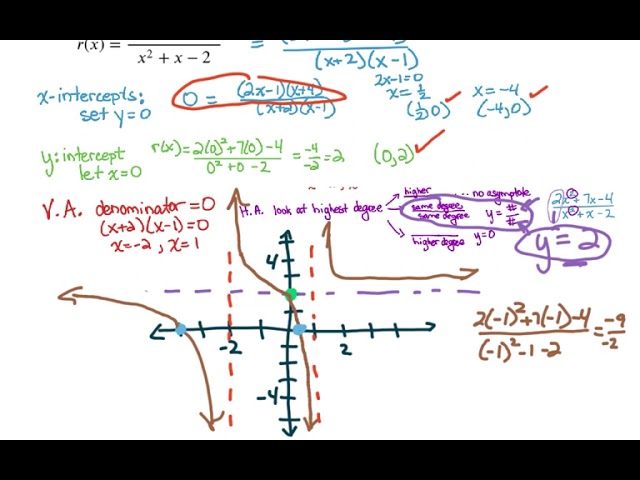 r(x) =
x² + x − 2
=
(x+2)(x−1)
x-intercepts:
set y=0
0 = (2x-1)(x+4)
(x+2)(x-1)
2x-1=0
x = 1/2
(1/2, 0)
x = -4
(-4, 0)
y-intercept
let x=0
r(x) = 2(0)²+7(0)-4 / 0²+0-2 = -4/-2 = 2
(0,2)
V.A. denominator = 0
(x+2)(x-1)=0
x=-2, x=1
H.A. look at highest degree
higher ... no asymptote
same degree
same degree
y = #/#
higher degree y=0
2x²+7x-4
1x²+x-2
y = 2
4
-2
2
-4
2(-1)²+7(-1)-4
(-1)²-1-2
= -9/-2